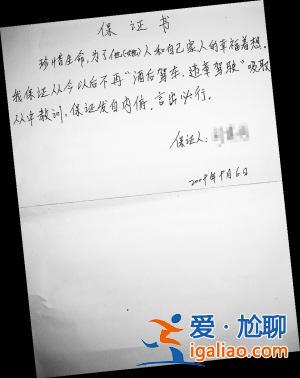 保证书
珍惜生命,为了他(她)人和自己家人的幸福着想。
我保证从今以后不再“酒后驾车、违章驾驶”吸取
从中教训,保证发自内俯,言出必行。
保证人:
2009年9月6日
爱·尬聊
igaliao.com